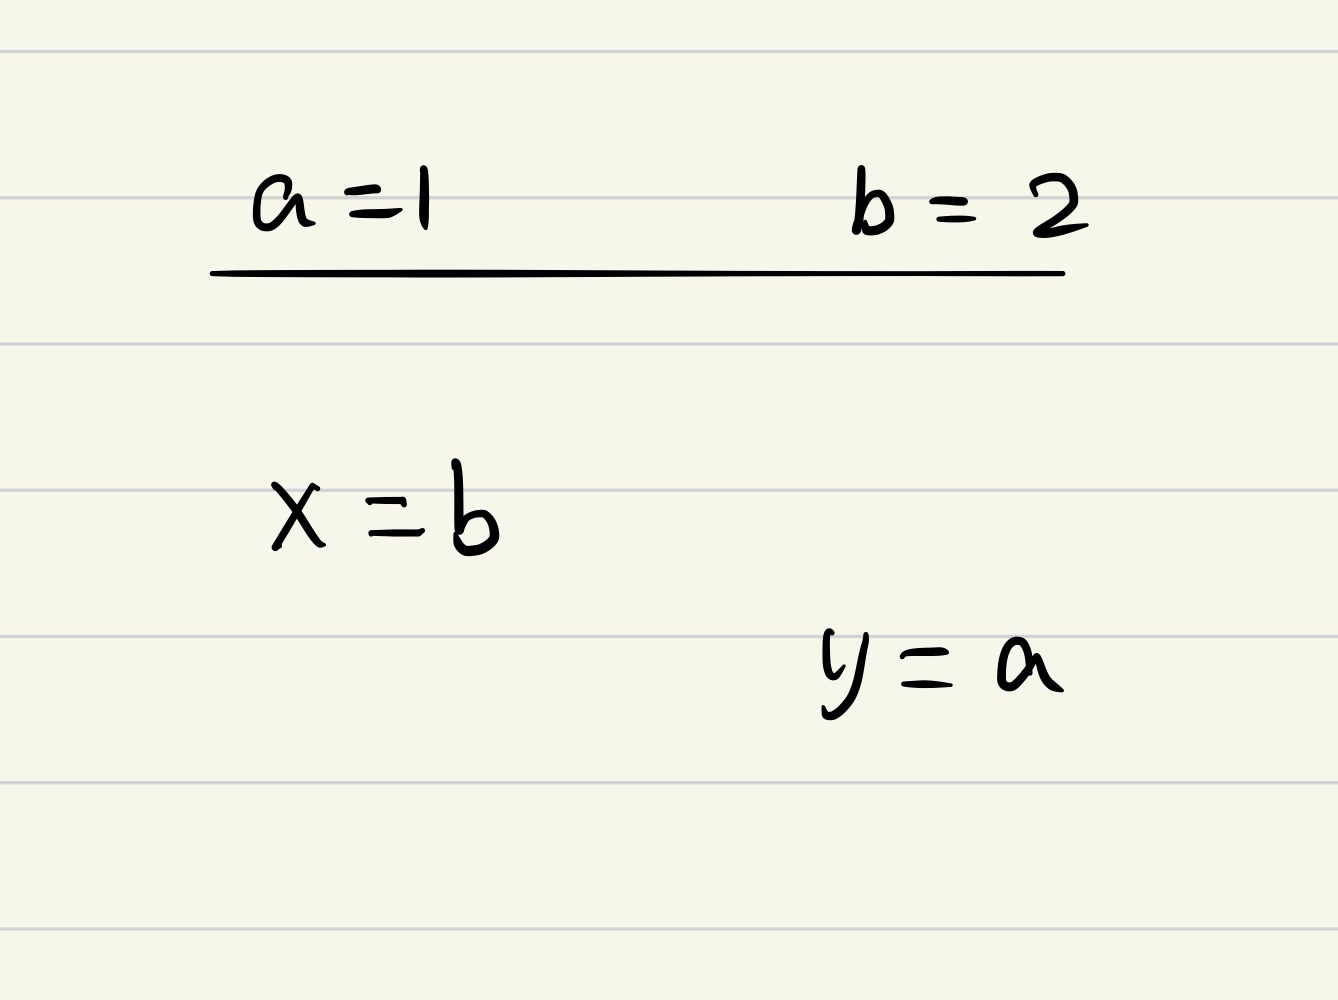 a = 1 b = 2
x = b
y = a